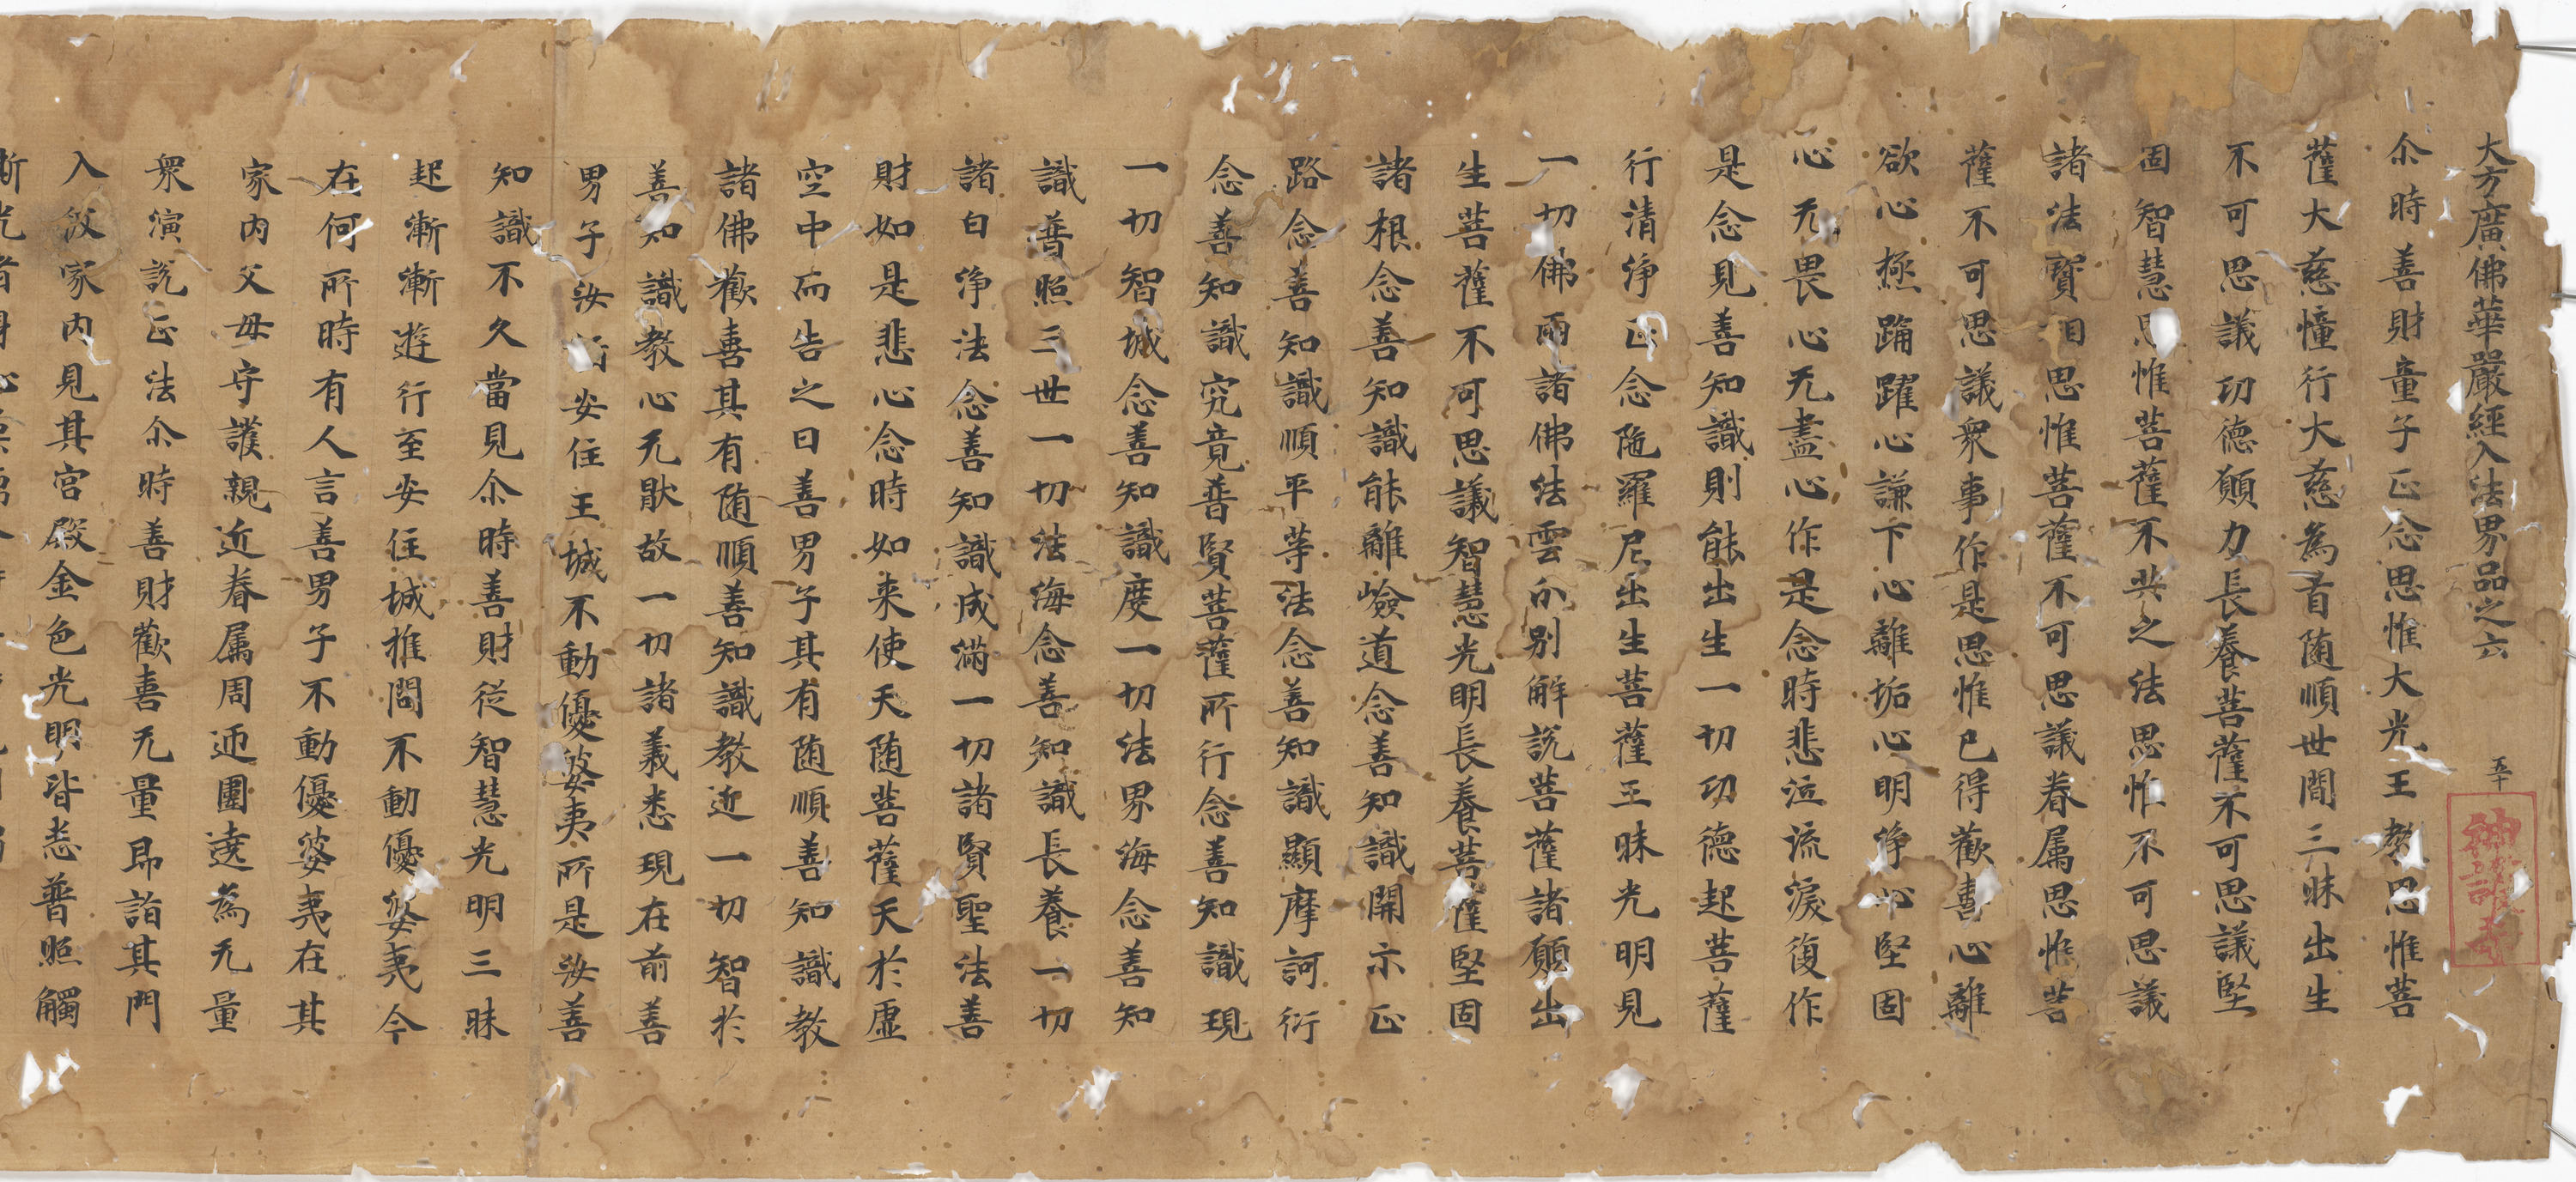 大方廣佛華嚴經入法界品之六 五十
神護寺
尒時善財童子正念思惟大光王教思惟菩
薩大慈憧行大慈為首随順世間三昧出生
不可思議功德願力長養菩薩不可思議堅
固智慧思惟菩薩不共之法思惟不可思議
諸法實相思惟菩薩不可思議眷属思惟菩
薩不可思議衆事作是思惟已得歡喜心離
欲心極踊躍心謙下心離垢心明淨心堅固
心无畏心无盡心作是念時悲泣流淚復作
是念見善知識則能出生一切功德起菩薩
行清淨正念陁羅尼出生菩薩三昧光明見
一切佛雨諸佛法雲分别解說菩薩諸願出
生菩薩不可思議智慧光明長養菩薩堅固
諸根念善知識能離嶮道念善知識開示正
路念善知識順平等法念善知識顯摩訶衍
念善知識究竟普賢菩薩所行念善知識現
一切智城念善知識度一切法界海念善知
識普照三世一切法海念善知識長養一切
諸白淨法念善知識成滿一切諸賢聖法善
財如是悲心念時如来使天随菩薩天於虚
空中而告之曰善男子其有随順善知識教
諸佛歡喜其有随順善知識教近一切智於
善知識教心无猒故一切諸義悉現在前善
男子汝詣安住王城不動優婆夷所是汝善
知識不久當見尒時善財從智慧光明三昧
起漸漸遊行至安住城推問不動優婆夷今
在何所時有人言善男子不動優婆夷在其
家内父母守護親近眷属周迊圍遶為无量
衆演說正法尒時善財歡喜无量即詣其門
入彼家内見其宮殿金色光明皆悉普照觸
斯光者身心